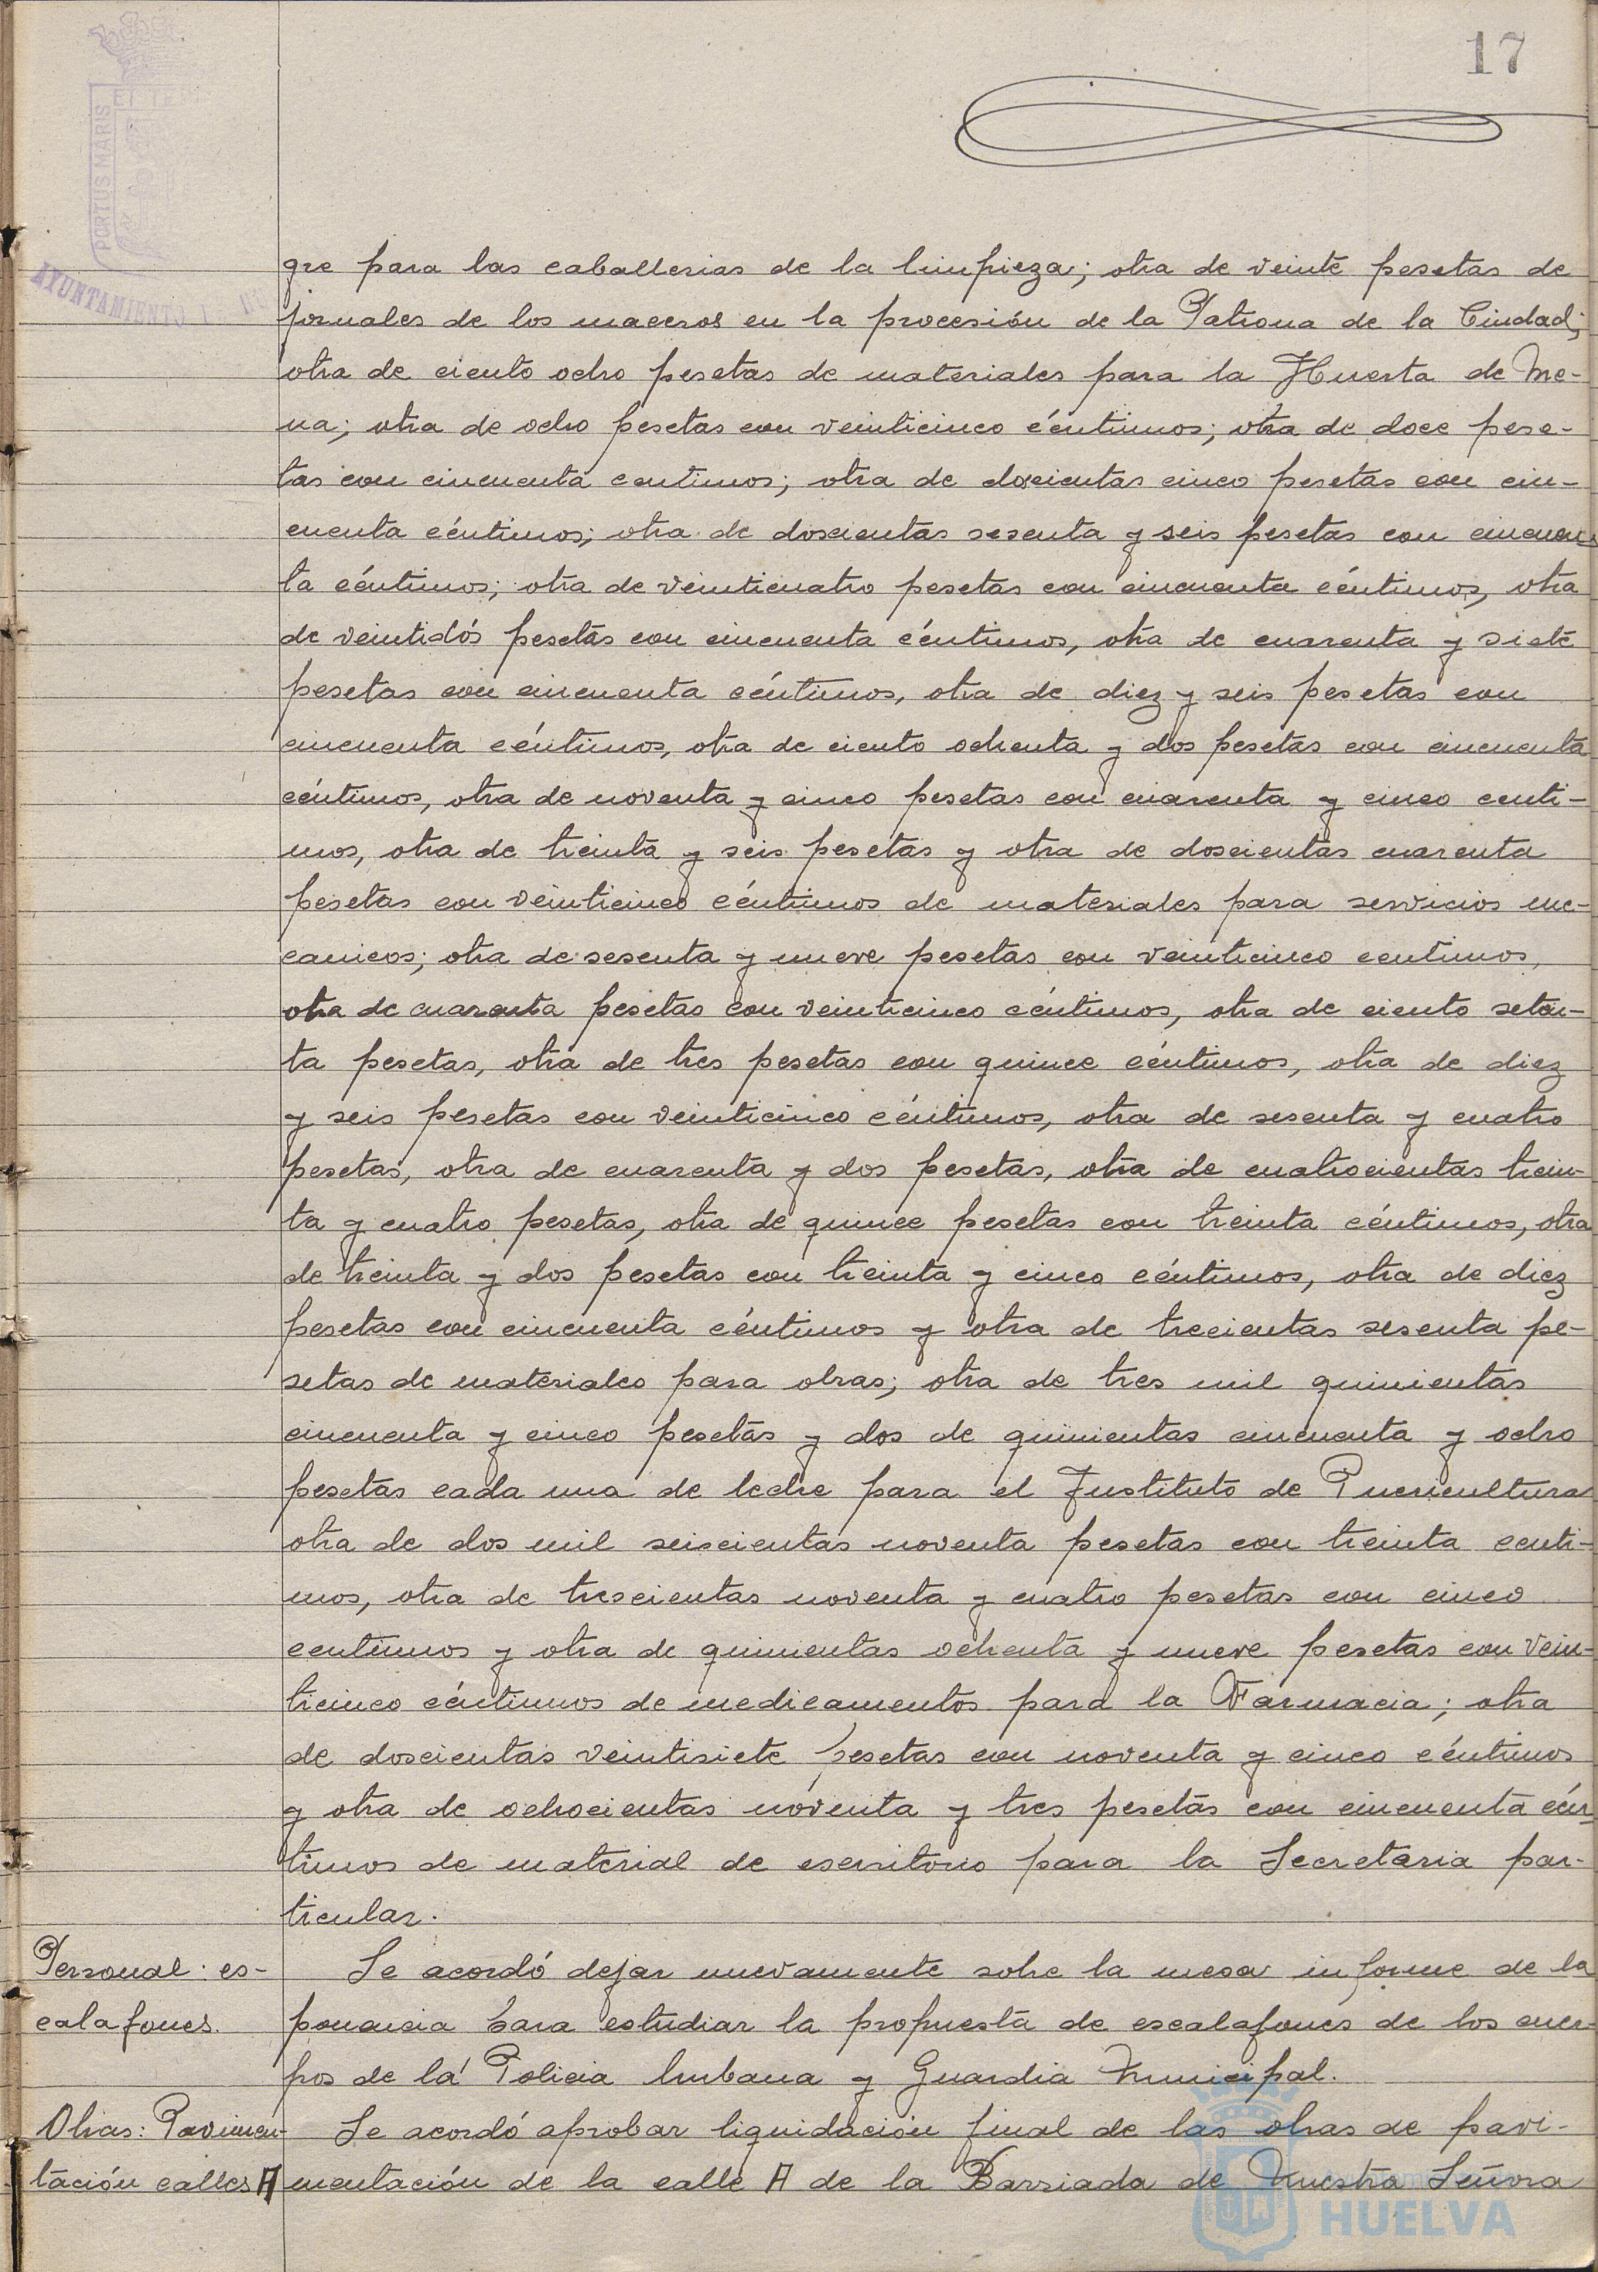 17
PORTUS MARIS
AYUNTAMIENTO
gre para las caballerias de la limpieza; otra de veinte pesetas de
jornales de los maceros en la procesión de la Patrona de la Ciudad;
otra de ciento ocho pesetas de materiales para la Huerta de Me-
na; otra de ocho pesetas con veinticinco céntimos; otra de doce pese-
tas con cincuenta centimos; otra de doscientas cinco pesetas con cin-
cuenta céntimos; otra de doscientas sesenta y seis pesetas con cincuen-
ta céntimos; otra de veinticuatro pesetas con cincuenta céntimos, otra
de veintidós pesetas con cincuenta céntimos, otra de cuarenta y siete
pesetas con cincuenta céntimos, otra de diez y seis pesetas con
cincuenta céntimos, otra de ciento ochenta y dos pesetas con cincuenta
céntimos, otra de noventa y cinco pesetas con cuarenta y cinco centi-
mos, otra de treinta y seis pesetas y otra de doscientas cuarenta
pesetas con veinticinco céntimos de materiales para servicios me-
canicos; otra de sesenta y nueve pesetas con veinticinco centimos,
otra de cuarenta pesetas con veinticinco céntimos, otra de ciento seten-
ta pesetas, otra de tres pesetas con quince céntimos, otra de diez
y seis pesetas con veinticinco céntimos, otra de sesenta y cuatro
pesetas, otra de cuarenta y dos pesetas, otra de cuatrocientas trein-
ta y cuatro pesetas, otra de quince pesetas con treinta céntimos, otra
de treinta y dos pesetas con treinta y cinco céntimos, otra de diez
pesetas con cincuenta céntimos y otra de trecientas sesenta pe-
setas de materiales para obras; otra de tres mil quinientas
cincuenta y cinco pesetas y dos de quinientas cincuenta y ocho
pesetas cada una de leche para el Instituto de Puericultura
otra de dos mil seiscientas noventa pesetas con treinta centi-
mos, otra de trescientas noventa y cuatro pesetas con cinco
centimos y otra de quinientas ochenta y nueve pesetas con vein-
ticinco céntimos de medicamentos para la Farmacia; otra
de doscientas veintisiete pesetas con noventa y cinco céntimos
y otra de ochocientas noventa y tres pesetas con cincuenta cén-
timos de material de escritorio para la Secretaria par-
ticular.
Personal: es-
calafones.
Se acordó dejar nuevamente sobre la mesa informe de la
ponencia para estudiar la propuesta de escalafones de los cuer-
pos de la Policia Urbana y Guardia Municipal.
Obras: Pavimen-
tación calles A
Se acordó aprobar liquidación final de las obras de pavi-
mentación de la calle A de la Barriada de Nuestra Señora
HUELVA